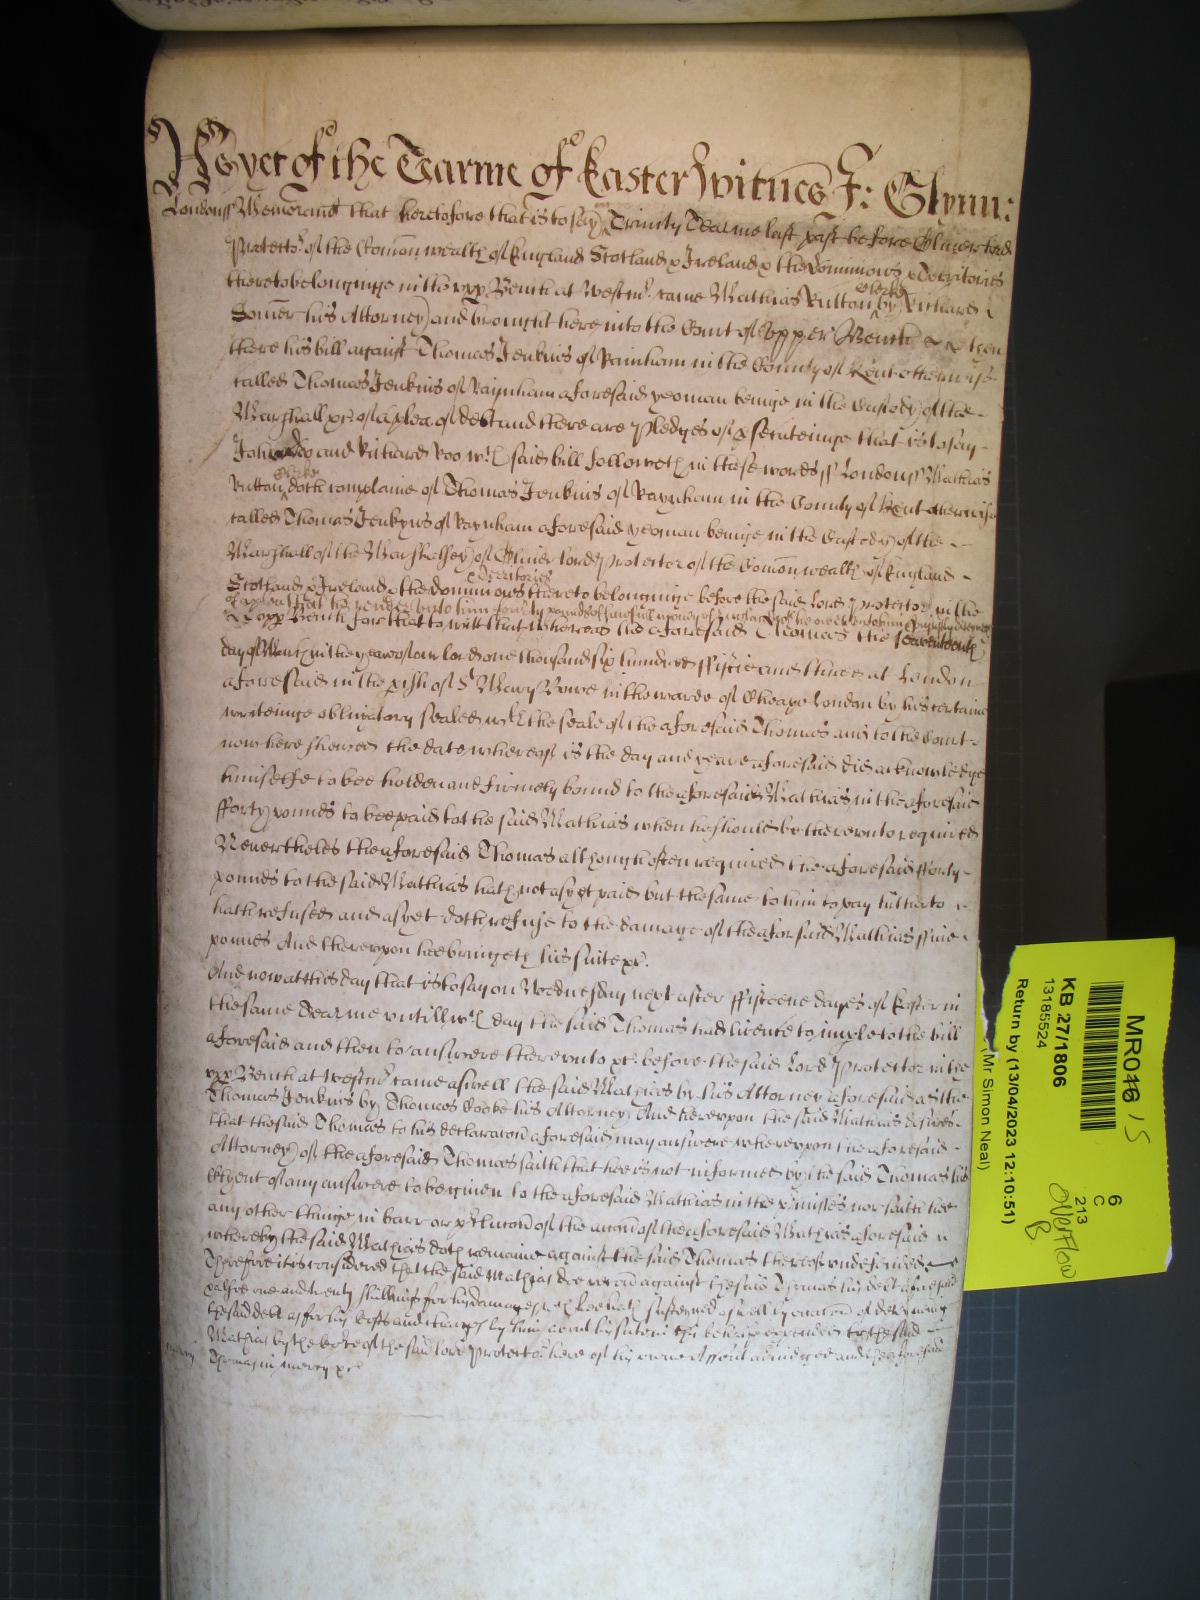 As yet of the Tearme of Easter Witnes J: Glynn:
Londonss Memorand that heretofore that is to say Trinity Tearme last past before Oliver Lord
Protector of the Comonwealth of England Scotland & Ireland & the Dominions & Territories
thereto belonginge in the upp Bench at Westmr. came Mathias Rutton Clerke by Richard
Somer his Attorney and brought here into the Court of Upper Bench then
there his bill against Thomas Jenkins of Rainham in the County of Kent otherwise
called Thomas Jenkins of Raynham aforesaid yeoman beinge in the Custody of the
Marshall &c. of a plea of debt and there are Pledges of prsecuteinge that is to say
John Doo and Richard Roo wch said bill followeth in these words ss Londonss Mathias
Rutton Clerke doth complaine of Thomas Jenkins of Raynham in the County of Kent otherwise
called Thomas Jenkyns of Raynham aforesaid yeoman beinge in the Custody of the
Marshall of the Marshalsey of Oliver Lord Protector of the Comonwealth of England
Scotland & Ireland & the dominions & Territories thereto belonginge before the said Lord Protector in the
of a plea that he render unto him forty pounds of lawfull money of England which he oweth unto him & unjustly deteyneth
Upp Bench for that to witt that whereas the aforesaid Thomas the seaventeenth
day of March in the yeare of our Lord one thousand six hundred ffiftie and three at London
aforesaid in the pish of St Mary Bowe in the warde of Cheape London by his certaine
writeinge obligatory sealed with the seale of the aforesaid Thomas and to the Court
now here shewed the date whereof is the day and yeare aforesaid did acknowledge
himselfe to bee holden and firmely bound to the aforesaid Mathias in the aforesaid
fforty pounds to bee paid to the said Mathias when he should be thereunto required
Nevertheles the aforesaid Thomas although often required the aforesaid fforty
pounds to the said Mathias hath not as yet paid but the same to him to pay hitherto
hath refused and as yet doth refuse to the damage of the aforsaid Mathias ffive
pounds And thereupon hee bringeth his suite &c.
And now at this day that is to say on Wednesday next after ffifteene dayes of Easter in
the same Tearme untill wch day the said Thomas had licence to imple to the bill
aforesaid and then to answere thereunto &c. before the said Lord Protector in the
upp Bench at Westmr came aswell the said Mathias by his Attorney aforesaid as the
Thomas Jenkins by Thomas Rooke his Attorney And hereupon the said Mathias desired
that the said Thomas to his declaracon aforesaid may answere whereupon the aforesaid
Attorney of the aforesaid Thomas saith that hee is not informed by the said Thomas his
Clyent of any answere to be given to the aforesaid Mathias in the p'misses nor saith hee
any other thinge in barr or p'clucon of the accon of the aforesaid Mathias aforesaid
whereby the said Mathias doth remaine against the said Thomas thereof undefended
Therefore it is considered that the said Mathias doe recovr against the said Thomas his debt aforesaid
one and twenty shillings for his damages wch hee hath susteyned aswell by occacon of deteyninge
the said debt as for his costs and charges by him about his suite in this behalfe expended to the said
Mathias by the Corte of the said Lord Protector here of his owne Assent adiudged and the aforesaid
Thomas in mercy &c
mercy
MR046 / 15
KB 27/1806
13185524
Return by (13/04/2023 12:10:51)
(Mr Simon Neal)
6
C
213
overflow
B